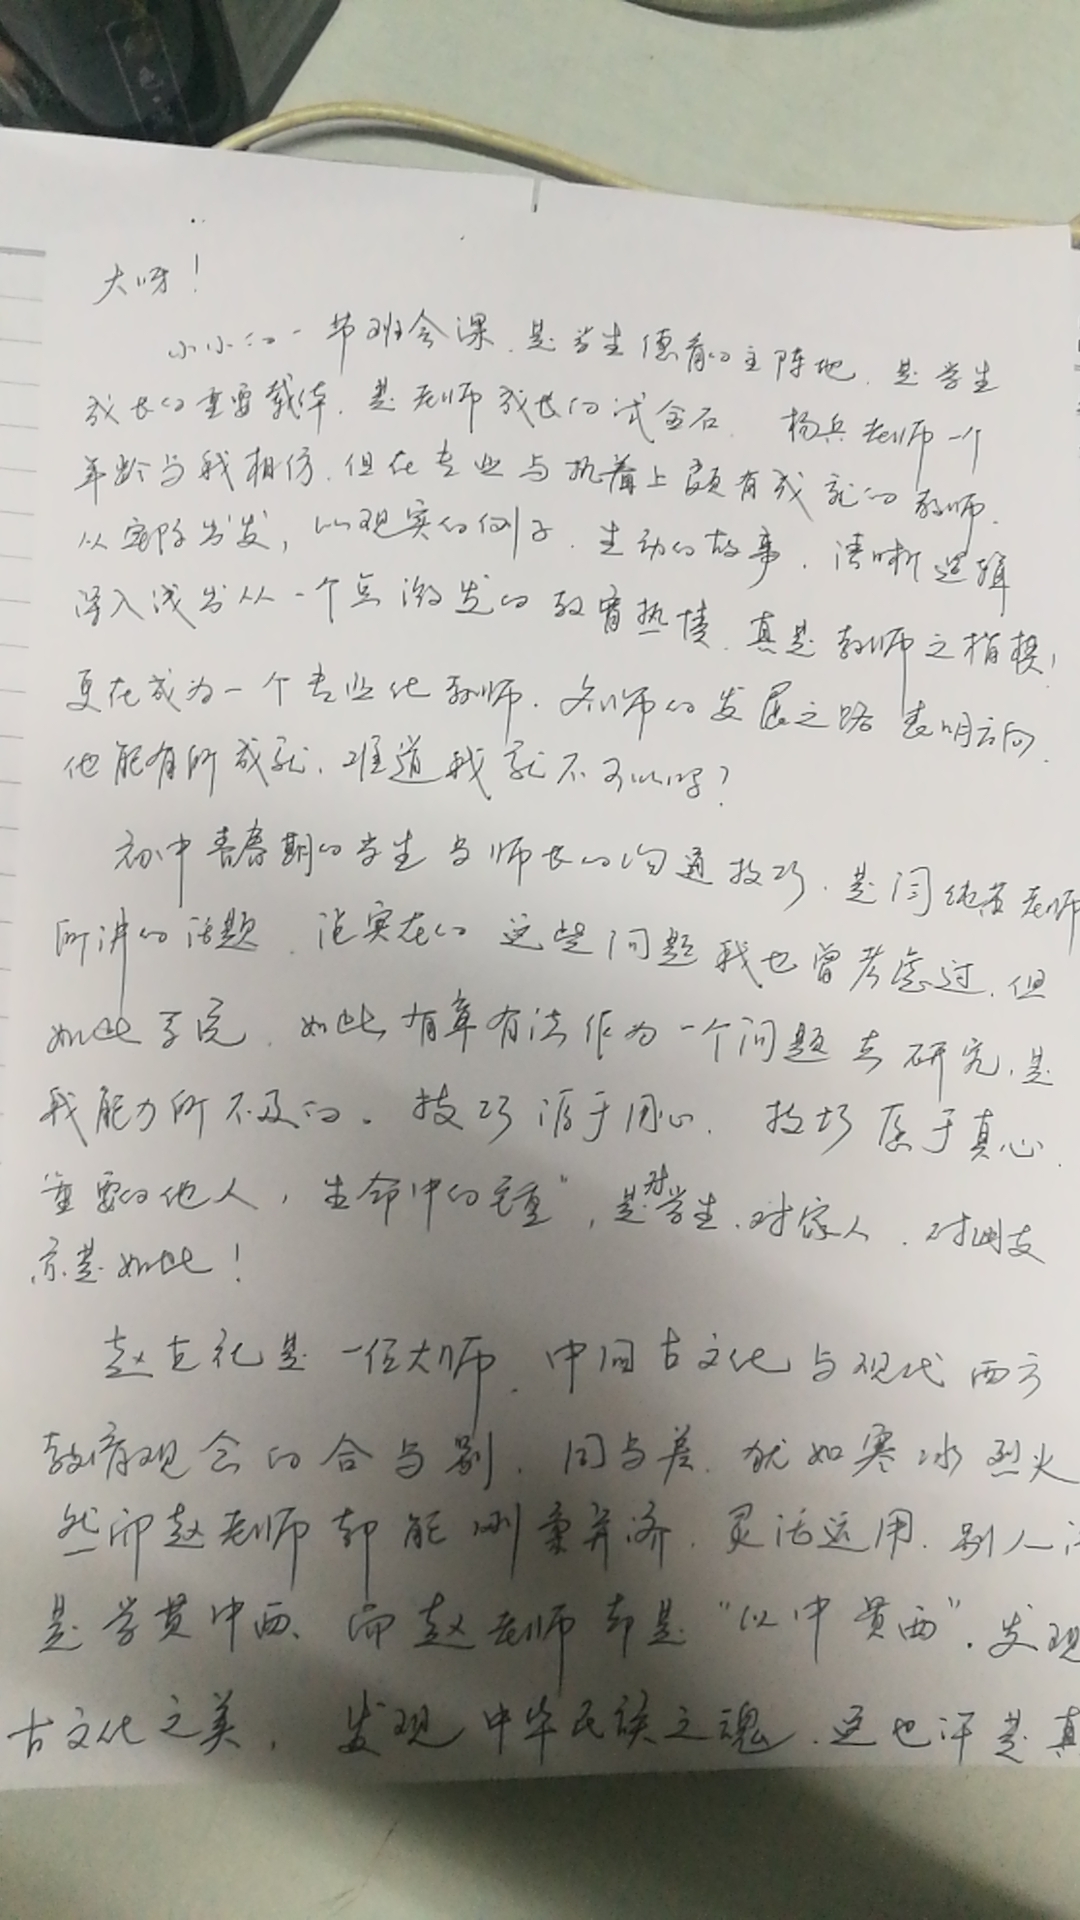 大呀！
小小的一节班会课，是学生德育的主阵地，是学生
成长的重要载体，是老师成长的试金石，杨兵老师一个
年龄与我相仿，但在专业与执着上颇有成就的教师，
从实际出发，以现实的例子，生动的故事，清晰逻辑
深入浅出从一个点激发的教育热情，真是教师之楷模！
更在成为一个专业化教师，名师的发展之路表明方向，
他能有所成就，难道我就不可以吗？
初中青春期的学生与师长的沟通技巧，是闫老师
所讲的话题，说实在的这些问题我也曾考虑过，但
如此系统，如此有章有法作为一个问题去研究，是
我能力所不及的。技巧源于用心，技巧原于真心，
重要的他人，生命中的"，是对学生、对家人、对朋友
亦是如此！
赵克礼是一位大师，中国古文化与现代西方
教育观念的合与别，同与差，犹如寒冰烈火
然而赵老师却能刚柔并济，灵活运用，别人
是学贯中西、而赵老师却是"以中贯西"，发现
古文化之美，发现中华民族之魂，这也许是真